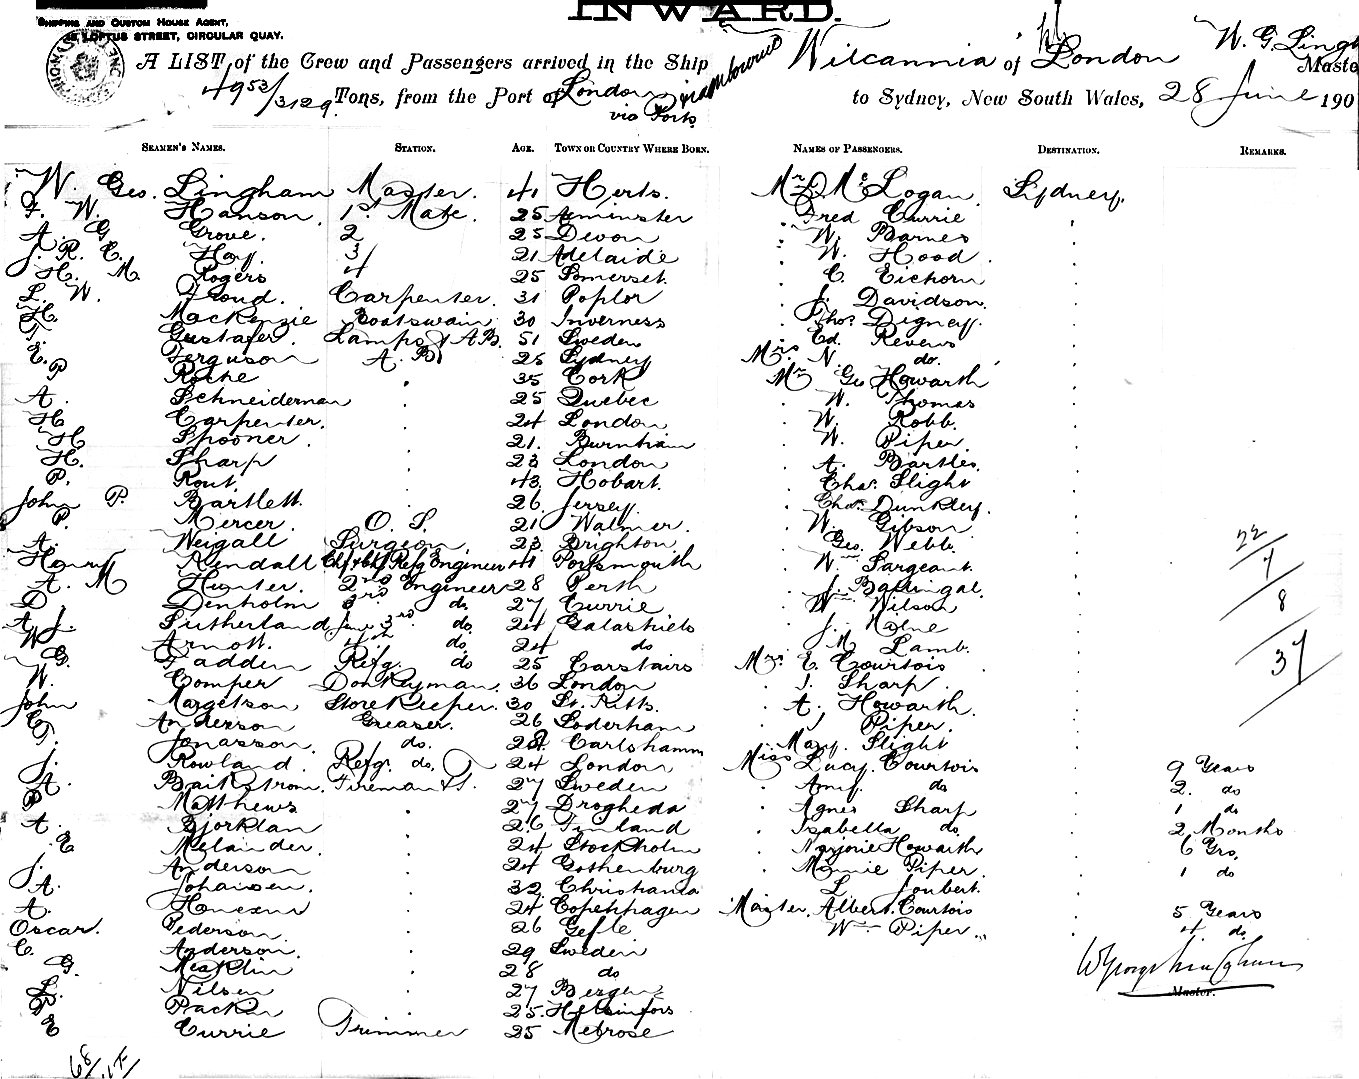 INWARD.
SHIPPING AND CUSTOM HOUSE AGENT,
LOFTUS STREET, CIRCULAR QUAY.
A LIST of the Crew and Passengers arrived in the Ship Wilcannia of London W. G. Lingh Maste
4953/3129 Tons, from the Port of London via Ports to Sydney, New South Wales, 28 June 190
SEAMEN'S NAMES. STATION. AGE. TOWN OR COUNTRY WHERE BORN. NAMES OF PASSENGERS. DESTINATION. REMARKS.
W. Geo. Lingham Master. 41 Herts. Mr D. McLogan Sydney.
F. W. Hanson. 1st Mate. 25 Axminster Fred Currie
A. G. Grove. 2 25 Devon . W. Barnes
J. R. C. Hay. 3 21 Adelaide . W. Hood
H. M Rogers 4 25 Somerset. . C. Eichorn
L. W. Froud. Carpenter. 31 Poplor J. Davidson.
H. MacKenzie Boatswain 30 Inverness Thos. Digney.
F. Gustafer. Lamps & A.B. 51 Sweden Ed. Revens
E. Ferguson A. B. 25 Sydney Mrs. N. do.
P Roche . 35 Cork Mr Geo Howarth
A. Schneiderman . 25 Quebec . W. Thomas
H Carpenter. . 24 London . W. Robb.
H Spooner. . 21. Burnham . W. Piper
H. Sharp . 23 London . A. Bartles.
P. Rout. . 43. Hobart. . Chas. Slight
John P. Bartlett. . 26. Jersey. . Chas. Dunkley.
P. Mercer. O. S. 21 Walmer. . W. Gibson
A. Neigall Surgeon. 23 Brighton . Geo. Webb.
Henry Kendall Chf & Chf Refg Engineer 41 Portsmouth . Wm Sargeant.
A. M Hunter. 2nd Engineer 28 Perth . J. Ballingal.
D. Denholm 3rd do 27 Currie . Wm Wilson
A J. Sutherland Jun. 3rd do. 24 Galashiels . J. Milne
W Arnott. 4th do. 24 do . M. Lamb.
G. Fadden Refg. do 25 Carstairs Mrs E. Courtois
W. Comper Donkeyman. 36 London . J. Sharp
John Margetson Storekeeper. 30 St. Kitts. . A. Howarth.
C. Anderson Greaser. 26 Soderham . J Piper.
F. Jonasson. do. 28 Carlshamn . Mary. Slight
J. Rowland. Refg. do. 24 London Miss Lucy. Courtois 9 Years
A. Backstrom. Fireman & T. 27 Sweden . Amy. do 2. do
P Matthews . 27 Drogheda . Agnes Sharp 1 do
A. Bjorklan . 26 Finland . Isabella do. 2 Months
E Melander. . 24 Stockholm . Marjorie Howarth 6 Yrs.
J. Anderson . 24 Gothenburg . Minnie Piper. 1 do
A. Johansen. . 32 Christiania . L Joubert.
A. . 24 Copenhagen Master. Albert. Courtois 5 Years
Oscar. Pederson. . 26 Gefle . Wm Piper. 4 do.
C. Anderson. . 29 Sweden
G. Mecklin . 28 do
L. Nilsen . 27 Bergen
F. Packen . 25. Helsinfors
E Currie Trimmer 25 Melrose
22
7
8
37
W George Lingham
Master.
68